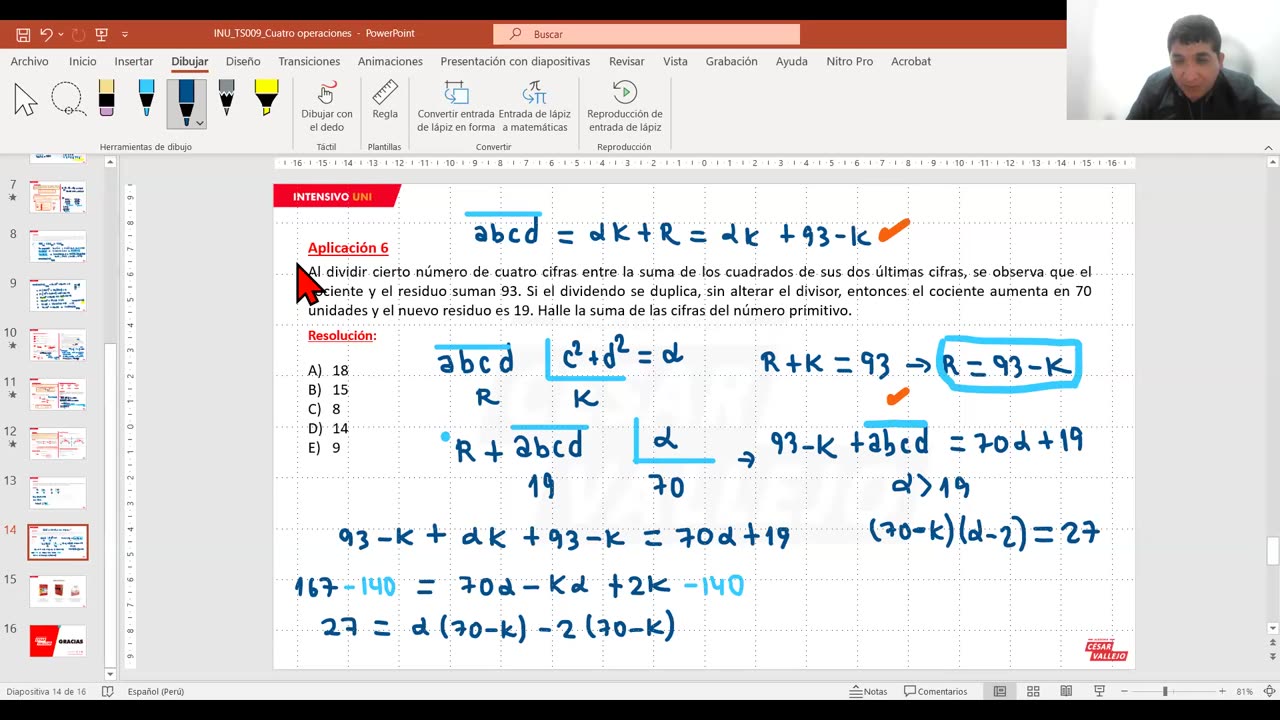 INU_TS009_Cuatro operaciones - PowerPoint
Buscar
Archivo Inicio Insertar Dibujar Diseño Transiciones Animaciones Presentación con diapositivas Revisar Vista Grabación Ayuda Nitro Pro Acrobat
Dibujar con el dedo
Regla
Convertir entrada de lápiz en forma
Entrada de lápiz a matemáticas
Reproducción de entrada de lápiz
Herramientas de dibujo Táctil Plantillas Convertir Reproducción
16 15 14 13 12 11 10 9 8 7 6 5 4 3 2 1 0 1 2 3 4 5 6 7 8 9 10 11 12 13 14 15 16
7
8
9
10
11
12
13
14
15
16
GRACIAS
INTENSIVO UNI
abcd = αK + R = αK + 93 - K
Aplicación 6
Al dividir cierto número de cuatro cifras entre la suma de los cuadrados de sus dos últimas cifras, se observa que el
cociente y el residuo suman 93. Si el dividendo se duplica, sin alterar el divisor, entonces el cociente aumenta en 70
unidades y el nuevo residuo es 19. Halle la suma de las cifras del número primitivo.
Resolución:
A) 18
B) 15
C) 8
D) 14
E) 9
abcd c² + d² = α R + K = 93 → R = 93 - K
R K
R + abcd α → 93 - K + abcd = 70α + 19
19 70 α > 19
93 - K + αK + 93 - K = 70α + 19 (70 - K)(α - 2) = 27
167 - 140 = 70α - Kα + 2K - 140
27 = α(70 - K) - 2(70 - K)
CÉSAR VALLEJO
Diapositiva 14 de 16 Español (Perú) Notas Comentarios 81%